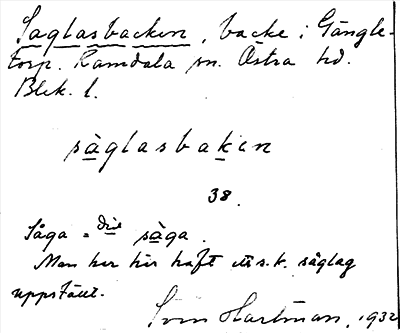 Saglasbacken, backe i Gängle-
torp. Ramdala sn. Östra hd.
Blek. l.
sàglasbaken
38.
Såga = dial sàga.
Man har här haft ett s.k. såglag
uppställt.
Sven Hartman, 1932